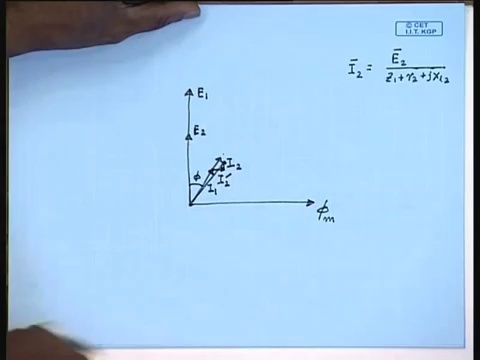 © CET
I.I.T. KGP
Ī₂ = Ē₂ / z₁+r₂+jx₁₂
E₁
E₂
φ
I₂
I₂'
I₁
φₘ